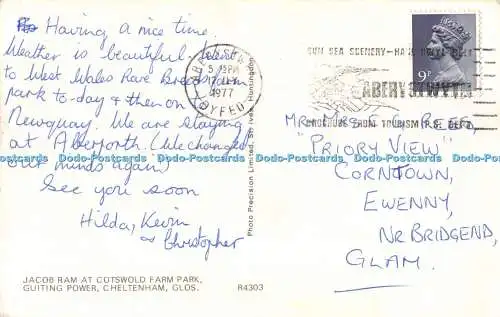 Having a nice time.
Weather is beautiful. Went
to West Wales Rare Breeds
park to-day & then on
Newquay. We are staying
at Aberporth (We changed
our minds again)
See you soon
Hilda, Kevin
& Christopher
JACOB RAM AT COTSWOLD FARM PARK,
GUITING POWER, CHELTENHAM, GLOS.
R4303
Photo Precision Limited, St. Ives, Huntingdon
5 PM
1977
DYFED
SUN SEA SCENERY
ABERYSTWYTH
BROCHURE FROM TOURISM (P.S.) DEPT.
9P
MR. MRS. C.C. REED,
"PRIORY VIEW"
CORNTOWN,
EWENNY,
NR BRIDGEND,
GLAM.
Dodo-Postcards Dodo-Postcards Dodo-Postcards Dodo-Postcards Dodo-Postcards Dodo-Postcards